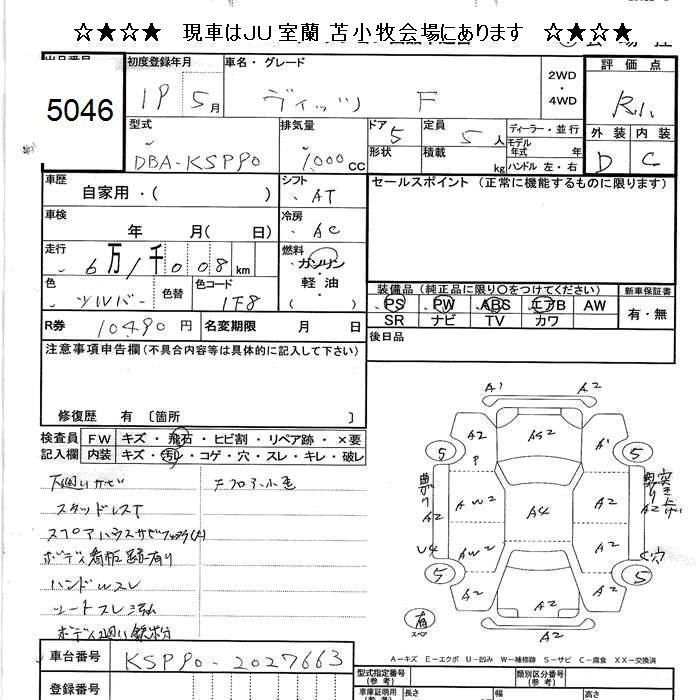 ☆★☆★ 現車はJU室蘭 苫小牧会場にあります ☆★☆★
5046
初度登録年月 車名・グレード 2WD ・ 4WD 評価点
19 5月 ヴィッツ F R.1.
型式 排気量 ドア 定員 ディーラー・並行 外装 内装
DBA-KSP90 1,000CC 5 5人 モデル年式 年 D C
形状 積載 kg ハンドル 左・右
車歴 シフト セールスポイント (正常に機能するものに限ります)
自家用・( ) AT
車検 冷房
年 月( 日) AC
走行 燃料
6万1千008km ガソリン・軽油
装備品 (純正品に限り○をつけてください) 新車保証書
色 色替 色コード PS PW ABS エアB AW 有・無
シルバー 1F8 SR ナビ TV カワ
R券 10490円 名変期限 月 日 後日品
注意事項申告欄 (不具合内容等は具体的に記入して下さい)
修復歴 有 〔箇所 〕
検査員記入欄 FW キズ・飛石・ヒビ割・リペア跡・×要
内装 キズ・汚れ・コゲ・穴・スレ・キレ・破レ
下廻りサビ
スタッドレス
ボディ看板跡有り
ハンドルスレ
シートスレ
A1 A2
A2 AS2 A1
P
5 5
曲がり A2 AW2 A4 A2 A2 突き上げ
U4 AW2 A2 C穴
5 5
A2 A2
有 スペア A2
A−キズ E−エクボ U−凹み W−補修跡 S−サビ C−腐食 XX−交換済
車台番号 KSP90-2027663
型式指定番号(参考) 類別区分番号(参考)
登録番号 車庫証明用(参考) 長さ 幅 高さ